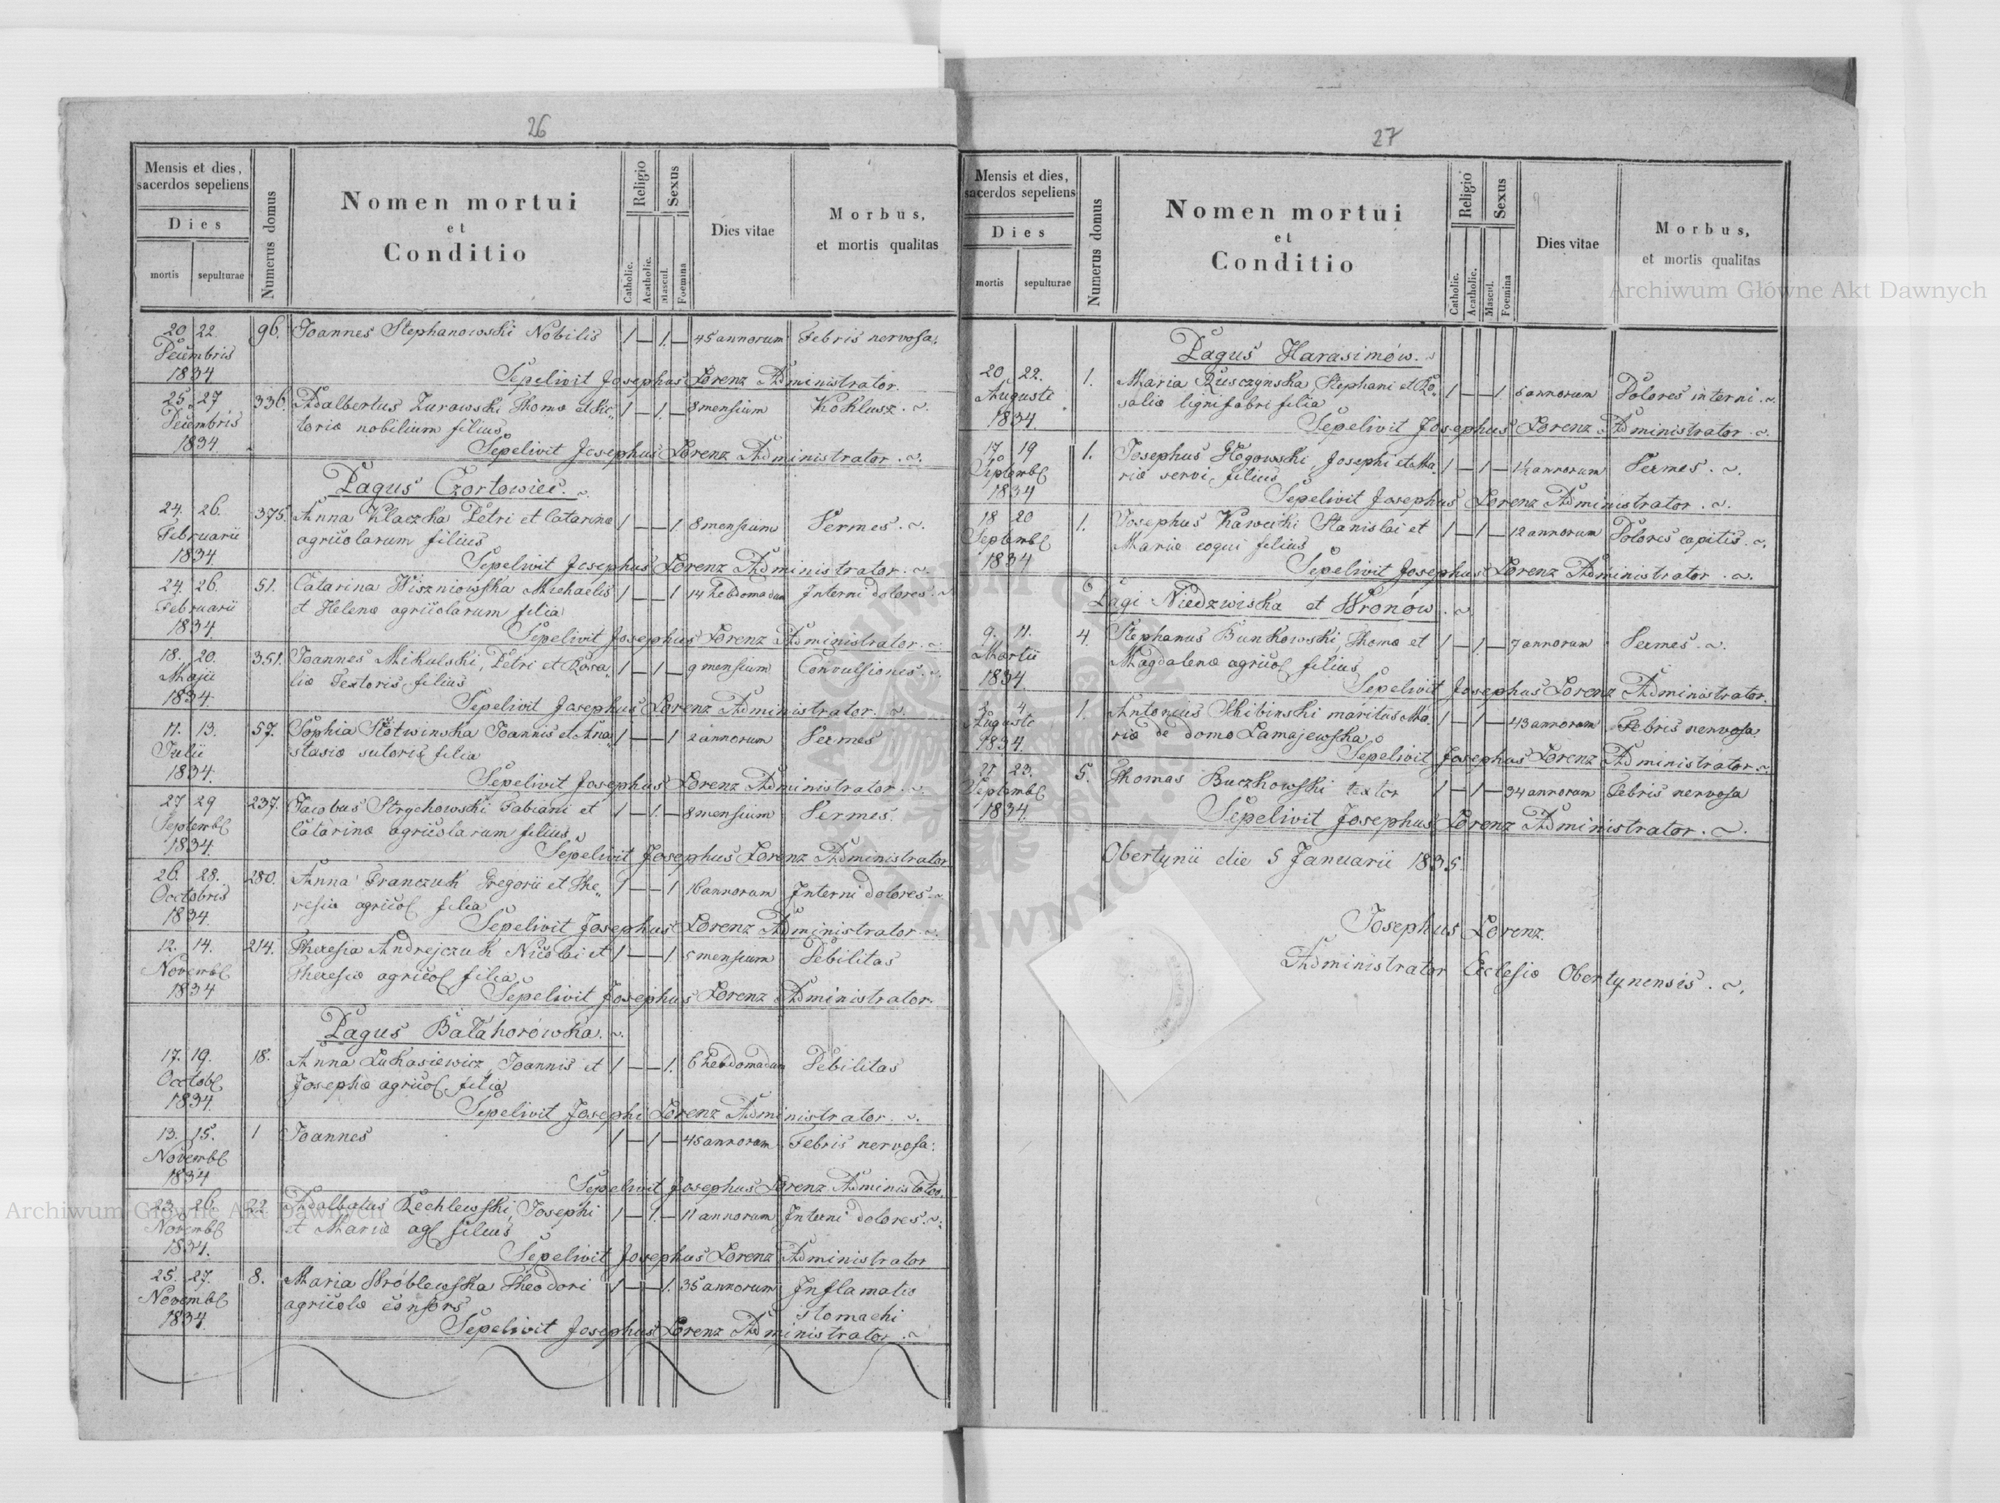 26
Mensis et dies,
sacerdos sepeliens
Dies
mortis sepulturae
Numerus domus
Nomen mortui
et
Conditio
Religio
Catholic.
Acatholic.
Sexus
Mascul.
Foemina
Dies vitae
Morbus,
et mortis qualitas
20 22 96. Joannes Stephanowski Nobilis 1 — 1. — 45 annorum Febris nervosa.
Decembris
1834 Sepelivit Josephus Lorenz Administrator.
25 27 336. Adalbertus Zurawski Thomæ et Vic, 1 — 1. — 8 mensium Koklusz. ~.
Decembris toriæ nobilium filius
1834 Sepelivit Josephus Lorenz Administrator. ~.
Pagus Czortowiec. ~.
24. 26. 375. Anna Klaczka Petri et Catarinæ 1 — — 1 8 mensium Vermes. ~.
Februarii agricolarum filius
1834 Sepelivit Josephus Lorenz Administrator. ~.
24. 26. 51. Catarina Wiszniowska Michaelis 1 — — 1 14 hebdomadum Interni dolores. ~
Februarii et Helenæ agricolarum filia
1834. Sepelivit Josephus Lorenz Administrator. ~
18. 20. 351. Joannes Mikulski, Petri et Rosa„ 1 — 1 — 9 mensium Convulsiones. ~.
Maji liæ Textoris filius
1834. Sepelivit Josephus Lorenz Administrator. ~.
11. 13. 57. Sophia Słotwinska Joannis et Ana„ 1 — — 1 2 annorum Vermes
Julii stasiæ sutoris filia
1834. Sepelivit Josephus Lorenz Administrator. ~.
27 29 237. Jacobus Strychowski Fabiani et 1 — 1. — 8 mensium Vermes.
Septembr Catarinæ agricolarum filius
1834. Sepelivit Josephus Lorenz Administrator
26. 28. 280. Anna Franczuk Gregorii et The„ 1 — — 1 16 annorum Interni dolores. ~
Octobris resiæ agricol filia
1834 Sepelivit Josephus Lorenz Administrator. ~.
12. 14. 214. Theresia Andrejczuk Nicolai et 1 — — 1 5 mensium Debilitas
Novembr Theresiæ agricol filia
1834 Sepelivit Josephus Lorenz Administrator.
Pagus Bałahorówka. ~.
17. 19. 18. Anna Łukasiewicz, Joannis et 1 — — 1. 6 hebdomadum Debilitas
Octobr Josephæ agricol filia
1834. Sepelivit Josephi Lorenz Administrator. ~.
13. 15. 1 Joannes 1 — 1 — 45 annorum Febris nervosa.
Novembr
1834 Sepelivit Josephus Lorenz Administrator
23. 26. 22 Adalbertus Rechlewski, Josephi 1 — 1. — 11 annorum Interni dolores. ~.
Novembr et Mariæ agl filius
1834. Sepelivit Josephus Lorenz Administrator
25. 27. 8. Maria Wróblewska Theodori 1 — — 1. 35 annorum Inflamatio
Novembr agricolæ consors stomachi
1834. Sepelivit Josephus Lorenz Administrator. ~
27
Mensis et dies,
sacerdos sepeliens
Dies
mortis sepulturae
Numerus domus
Nomen mortui
et
Conditio
Religio
Catholic.
Acatholic.
Sexus
Mascul.
Foemina
Dies vitae
Morbus,
et mortis qualitas
Pagus Harasimów. ~
20 22. 1. Maria Rusczynska, Stephani et Ro, 1 — — 1 6 annorum Dolores interni. ~.
Augusti saliæ lignifabri filia
1834. Sepelivit Josephus Lorenz Administrator. ~.
17 19 1. Josephus Głogowski, Josephi et Ma„ 1 — 1 — 1½ annorum Vermes. ~.
Septembr riæ servi, filius
1834 Sepelivit Josephus Lorenz Administrator. ~.
18 20 1. Josephus Kawecki Stanislai et 1 — 1 — 12 annorum Dolores capitis. ~.
Septembr Mariæ coqui filius
1834 Sepelivit Josephus Lorenz Administrator. ~.
Pagi Niedzwiska et Wronów. ~
9. 11. 4. Stephanus Bunkowski, Thomæ et 1 — 1 — 7 annorum Vermes. ~.
Martii Magdalenæ agricol filius
1834. Sepelivit Josephus Lorenz Administrator.
4. 1. Antonius Skibinski maritus Ma, 1 — 1 — 43 annorum Febris nervosa.
Augusti riæ de domo Łamajewska
1834. Sepelivit Josephus Lorenz Administrator. ~.
23. 5. Thomas Buczkowski textor 1 — 1 — 34 annorum Febris nervosa
Septembr
1834. Sepelivit Josephus Lorenz Administrator. ~.
Obertynii die 5 Januarii 1835.
Josephus Lorenz.
Administrator Ecclesiæ Obertynensis. ~.
Archiwum Główne Akt Dawnych
Archiwum Główne Akt Dawnych